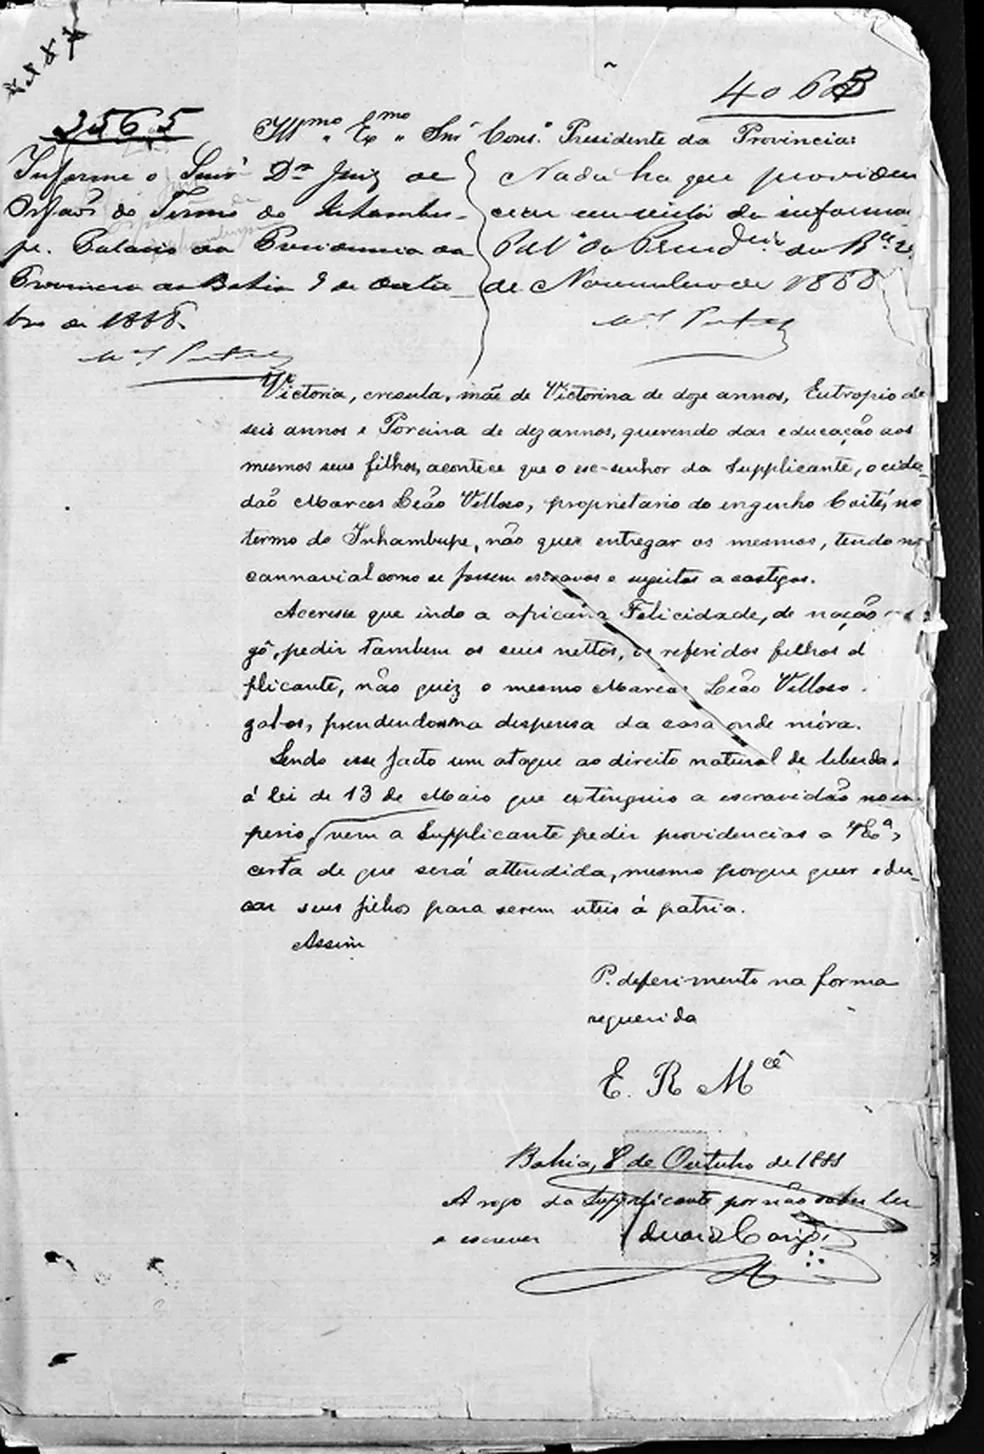 4063
2565
Illmo. Exmo. Snr. Cons. Presidente da Provincia:
Informe o Snr. Dr. Juiz de
Orfãos do Termo de Inhambu-
pe. Palacio da Presidencia da
Provincia da Bahia 9 de Outu-
bro de 1888.
Nada ha que providen
ciar em vista da informa
Pal.º da Presid.cia da B.ª 2
de Novembro de 1888
Victoria, creoula, mãe de Victorina de doze annos, Eutropio de
seis annos e Porcina de dez annos, querendo dar educação aos
mesmos seus filhos, acontece que o ex-senhor da Supplicante, o cida-
dão Marcos Leão Velloso, proprietario do engenho Coité, no
termo do Inhambupe, não quer entregar os mesmos, tendo no
cannavial como se fossem escravos e sujeitos a castigos.
Accresce que indo a africana Felicidade, de nação
gô, pedir tambem os seus nettos, os referidos filhos d
plicante, não quiz o mesmo Marcos Leão Velloso
gal-os, prendendo-os na despensa da casa onde móra.
Sendo esse facto um ataque ao direito natural de liberda
á lei de 13 de Maio que extinguio a escravidão no im
perio, vem a Supplicante pedir providencias a VExª,
certa de que será attendida, mesmo porque quer edu-
car seus filhos para serem uteis á patria.
Assim
P. deferimento na forma
requerida
E. R. Mcê
Bahia, 8 de Outubro de 1888
A rogo da Supplicante por não saber ler
e escrever Eduardo Carigé